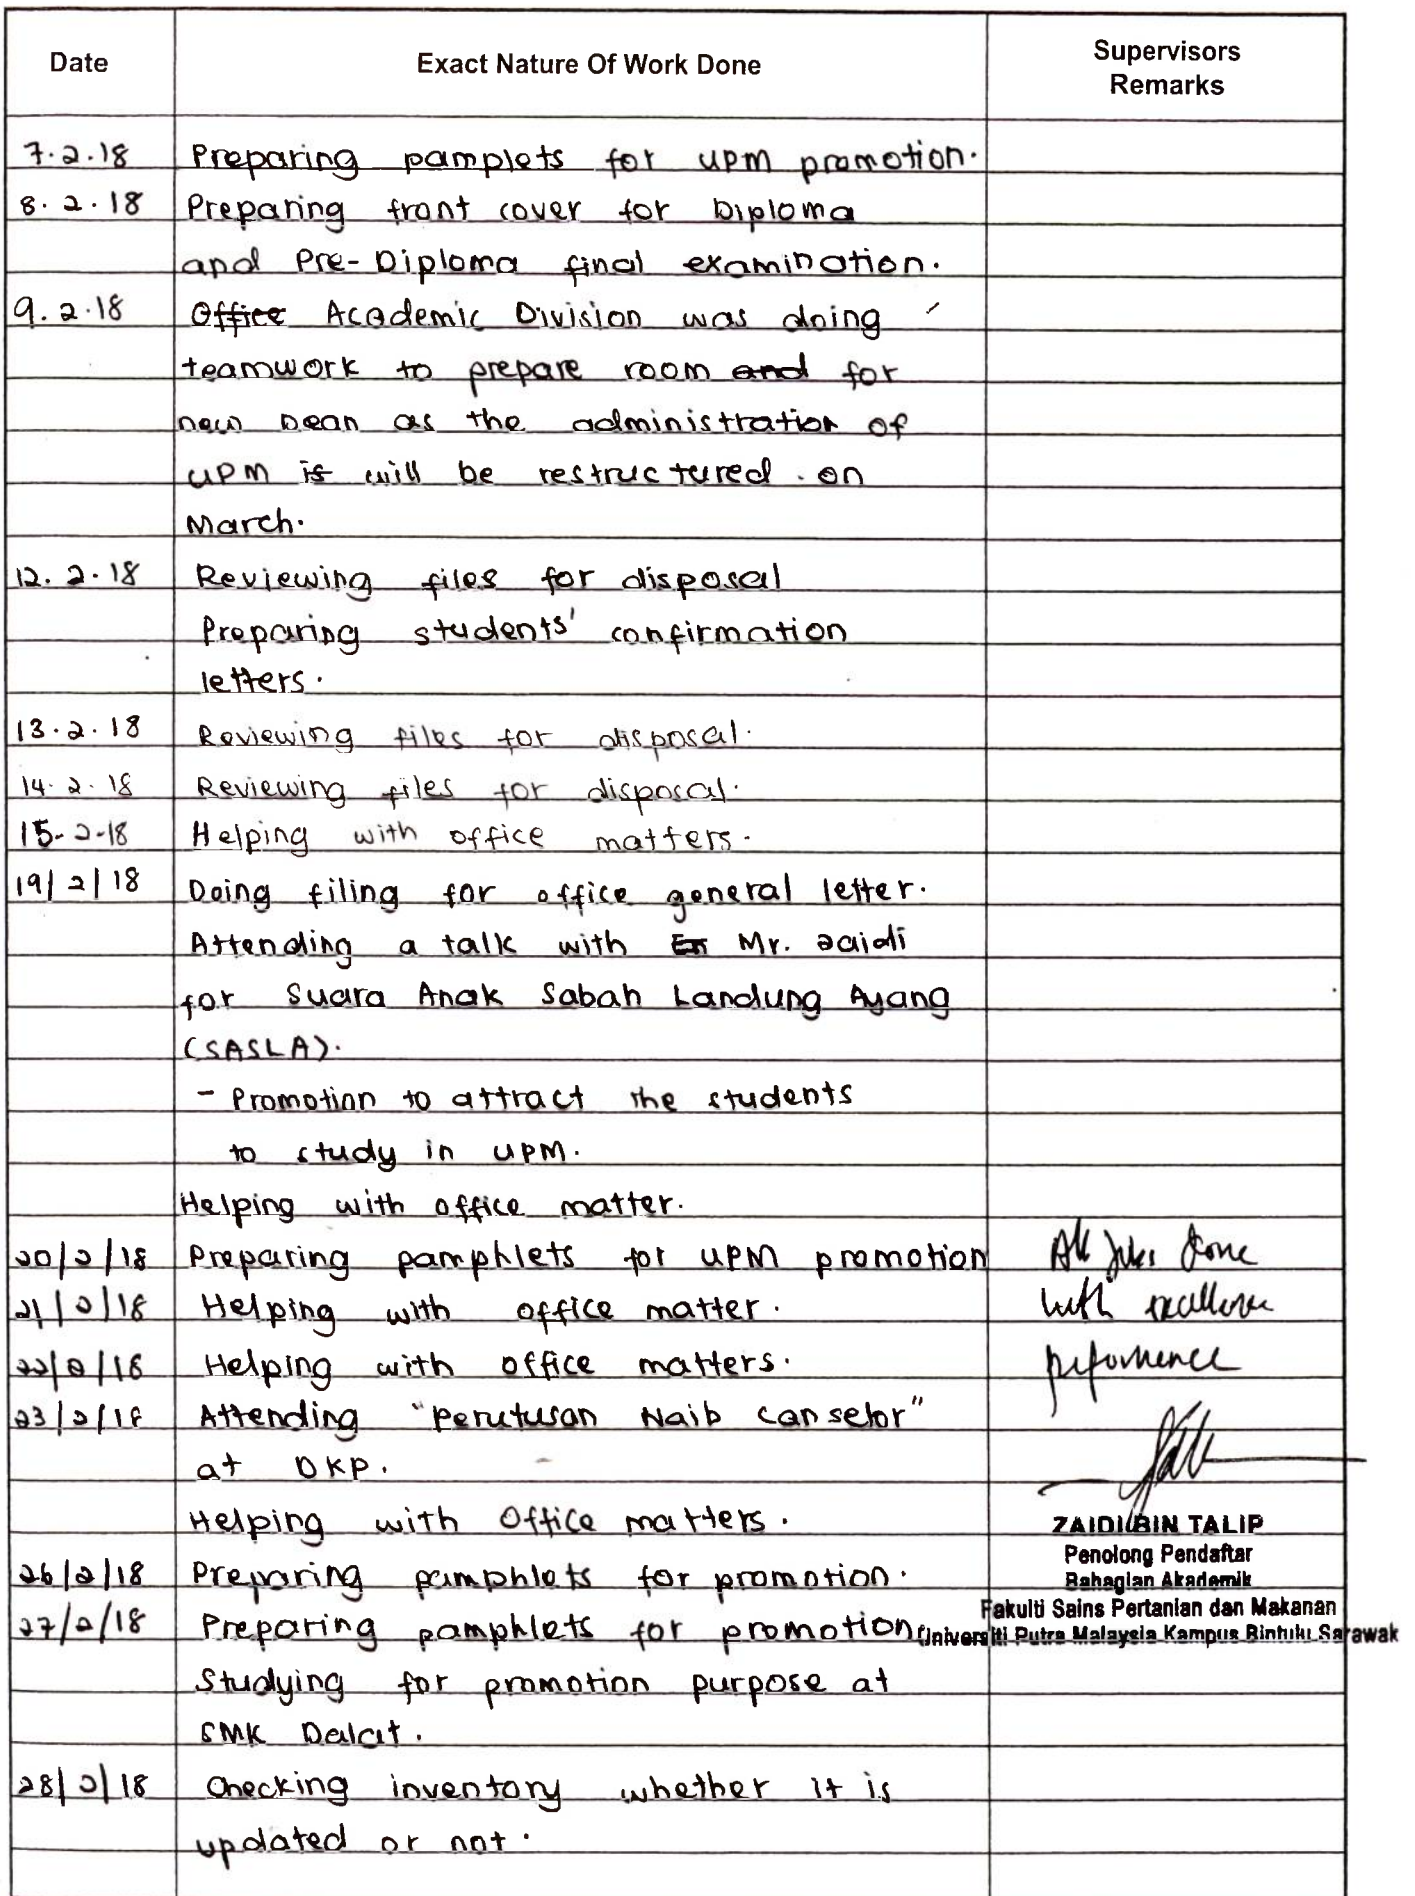 Date Exact Nature Of Work Done Supervisors Remarks
7.2.18 Preparing pamplets for UPM promotion.
8.2.18 Preparing front cover for Diploma
and Pre-Diploma final examination.
9.2.18 Office Academic Division was doing
teamwork to prepare room and for
new Dean as the administration of
UPM is will be restructured. on
March.
12.2.18 Reviewing files for disposal
Preparing students' confirmation
letters.
13.2.18 Reviewing files for disposal.
14.2.18 Reviewing files for disposal.
15-2-18 Helping with office matters.
19/2/18 Doing filing for office general letter.
Attending a talk with En Mr. Zaidi
for Suara Anak Sabah Landung Ayang
(SASLA).
- Promotion to attract the students
to study in UPM.
Helping with office matter.
20/2/18 Preparing pamphlets for UPM promotion All jobs done
21/2/18 Helping with office matter. with excellence
22/2/18 Helping with office matters. peformence
23/2/18 Attending "Perutusan Naib Canselor"
at DKP.
Helping with Office matters. ZAIDI BIN TALIP
Penolong Pendaftar
26/2/18 Preparing pamphlets for promotion. Bahagian Akademik
Fakulti Sains Pertanian dan Makanan
27/2/18 Preparing pamphlets for promotion. Universiti Putra Malaysia Kampus Bintulu Sarawak
Studying for promotion purpose at
SMK Dalat.
28/2/18 Checking inventory whether it is
updated or not.